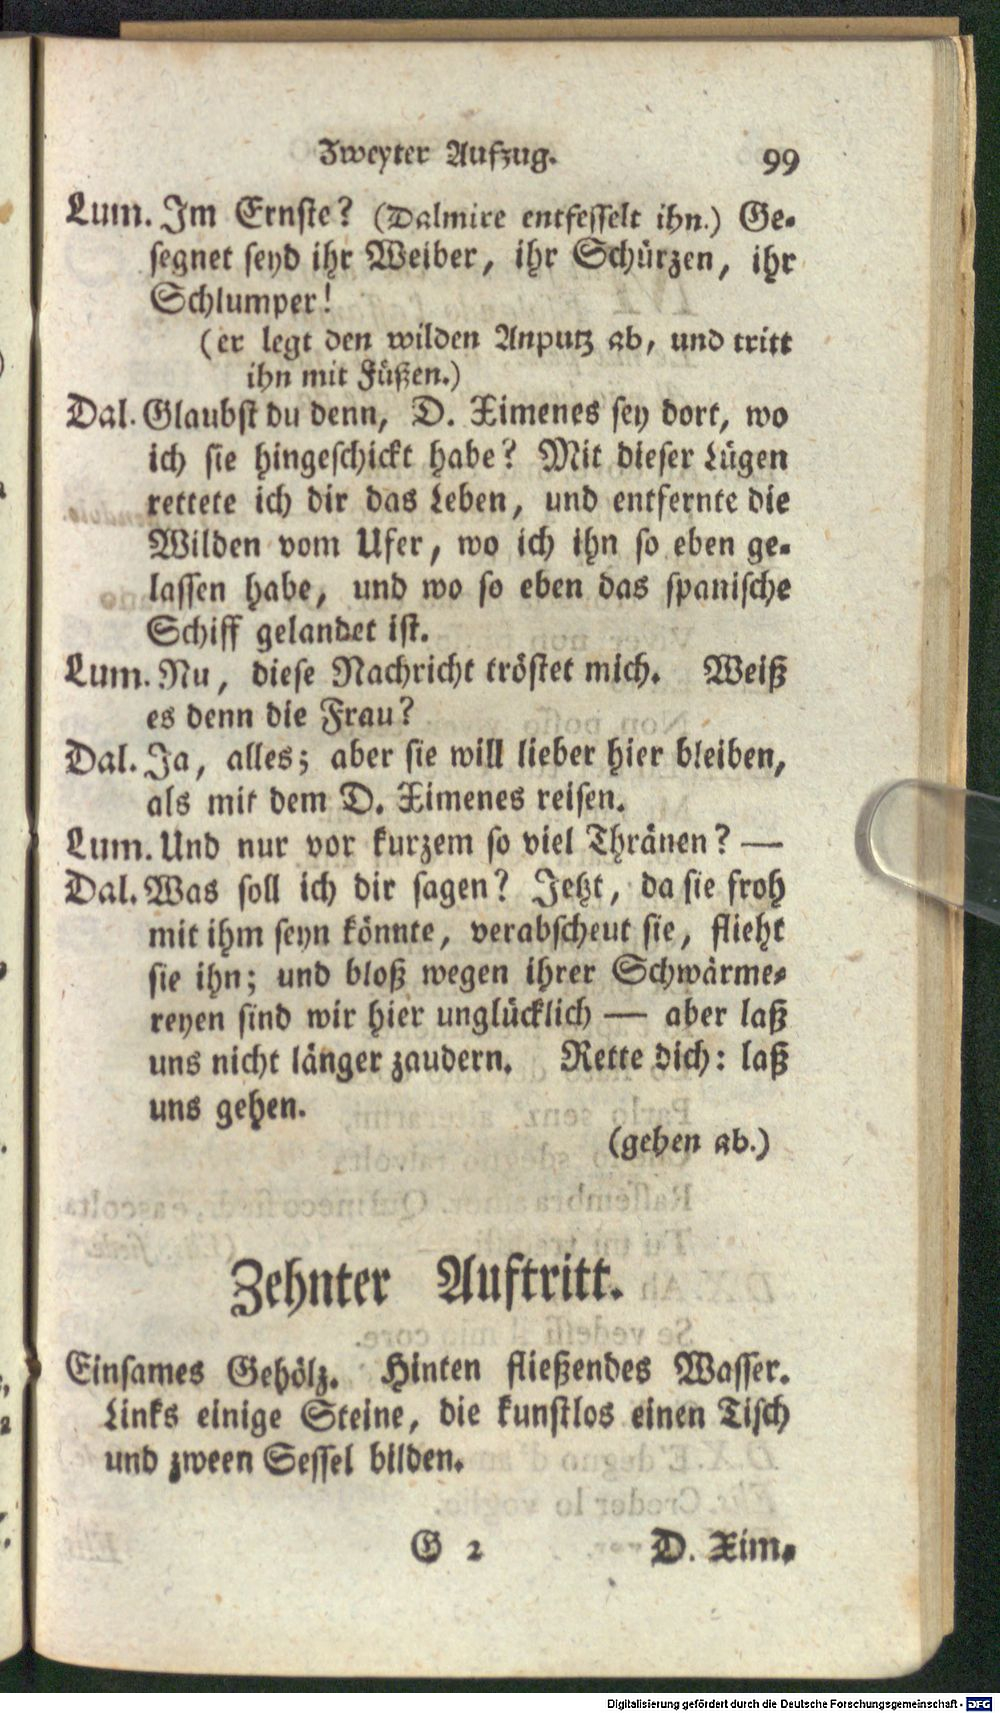 Zweyter Aufzug. 99
Lum. Im Ernste? (Dalmire entfesselt ihn.) Ge-
segnet seyd ihr Weiber, ihr Schürzen, ihr
Schlumper!
(er legt den wilden Anputz ab, und tritt
ihn mit Füßen.)
Dal. Glaubst du denn, D. Ximenes sey dort, wo
ich sie hingeschickt habe? Mit dieser Lügen
rettete ich dir das Leben, und entfernte die
Wilden vom Ufer, wo ich ihn so eben ge-
lassen habe, und wo so eben das spanische
Schiff gelandet ist.
Lum. Nu, diese Nachricht tröstet mich. Weiß
es denn die Frau?
Dal. Ja, alles; aber sie will lieber hier bleiben,
als mit dem D. Ximenes reisen.
Lum. Und nur vor kurzem so viel Thränen? —
Dal. Was soll ich dir sagen? Jetzt, da sie froh
mit ihm seyn könnte, verabscheut sie, flieht
sie ihn; und bloß wegen ihrer Schwärme-
reyen sind wir hier unglücklich — aber laß
uns nicht länger zaudern. Rette dich: laß
uns gehen.
(gehen ab.)
Zehnter Auftritt.
Einsames Gehölz. Hinten fließendes Wasser.
Links einige Steine, die kunstlos einen Tisch
und zween Sessel bilden.
G 2 D. Xim.
Digitalisierung gefördert durch die Deutsche Forschungsgemeinschaft - DFG